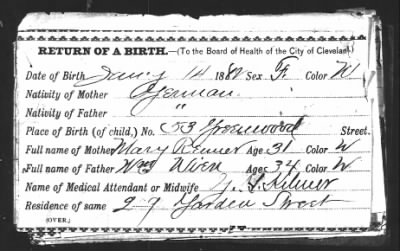 RETURN OF A BIRTH.—(To the Board of Health of the City of Cleveland.)
Date of Birth Jany 14 1880 Sex F. Color W
Nativity of Mother German
Nativity of Father "
Place of Birth (of child.) No. 53 Greenwood Street.
Full name of Mother Mary Renner Age 31 Color W
Full name of Father Wm Age 34 Color W
Name of Medical Attendant or Midwife
Residence of same 29 Garden Street
(OVER.)